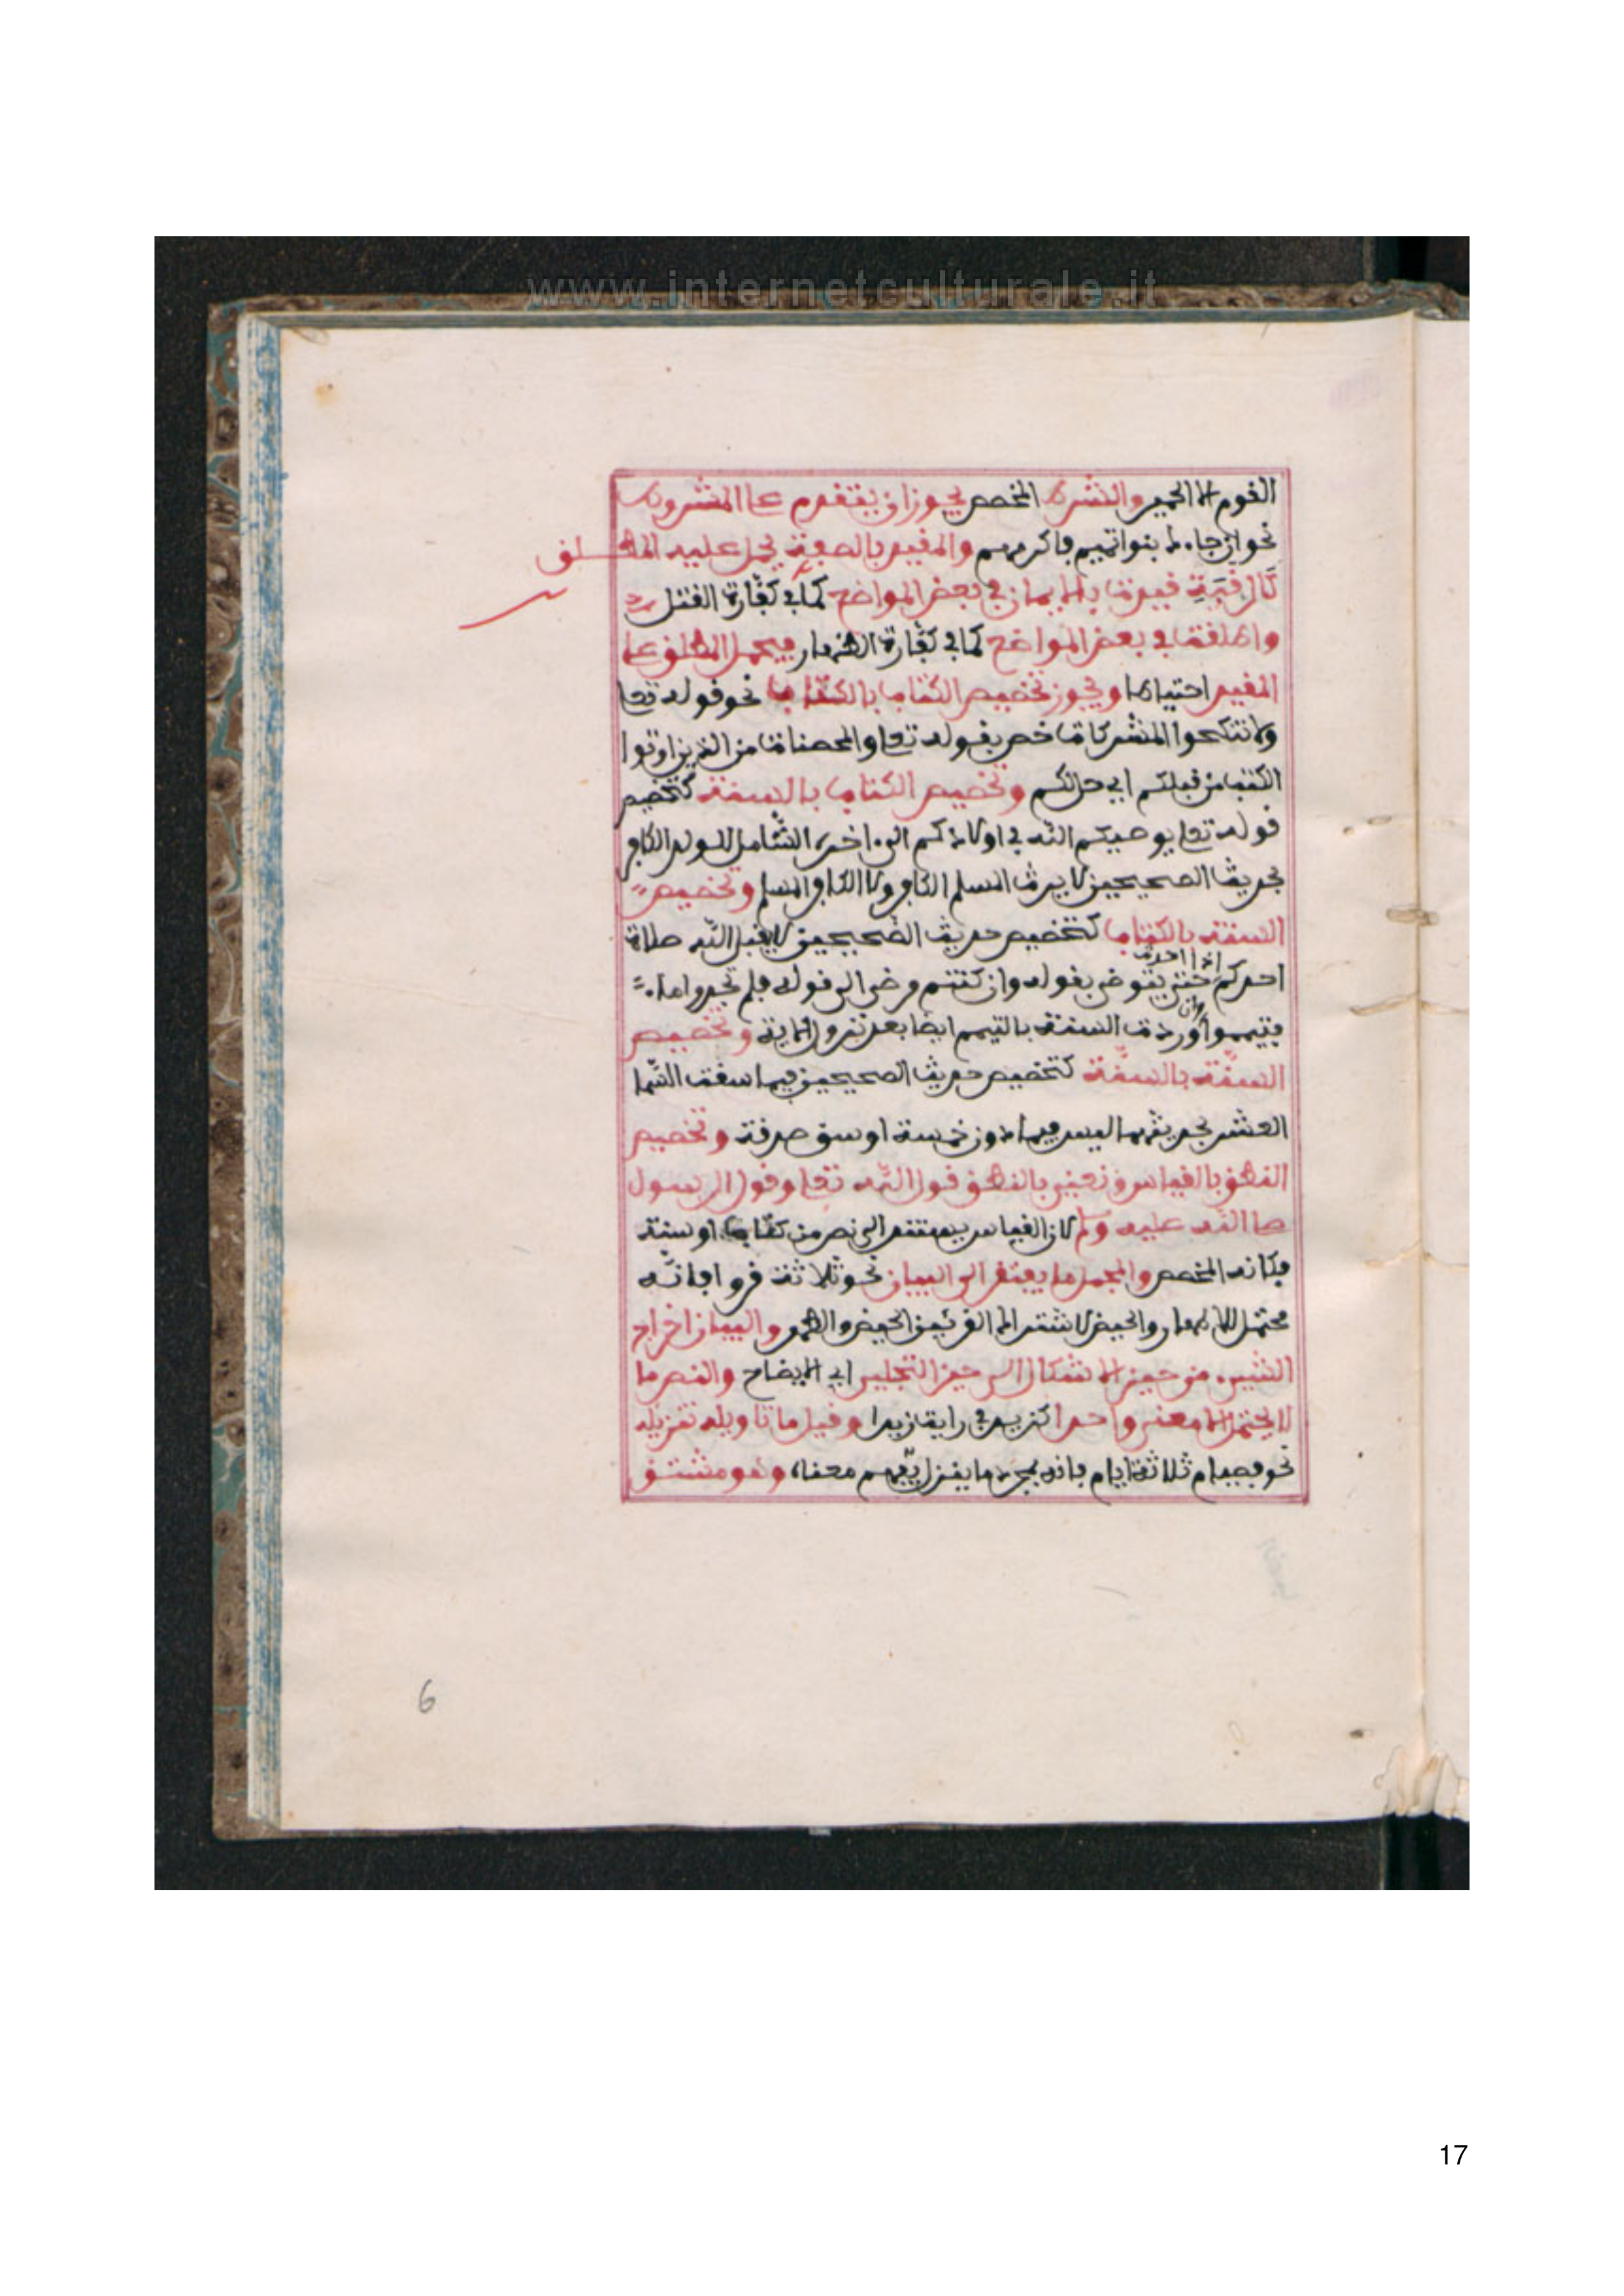 www.internetculturale.it
القوم الا الحمير والشرط المخصص يجوز ان يتقدم على المشروط
نحو ان جاءك بنوا تميم فاكرمهم والمقيد بالصفة يحمل عليه المطلق
كَالرقَبَةِ قيدت بالايمان في بعض المواضع كما في كفّارة القتل
واطلقت في بعض المواضع كما في كفّارة الظهار فيحمل المطلق على
المقيد احتياطا ويجوز تخصيص الكتاب بالكتاب نحو قوله تعا
ولا تنكحوا المشركات خص بقوله تعا والمحصنات من الذين اوتوا
الكتب من قبلكم اي حل لكم وتخصيص الكتاب بالسنة كتخصيص
قوله تعا يوصيكم الله في اولادكم الى اخره الشامل للولد الكافر
بحديث الصحيحين لا يرث المسلم الكافر ولا الكافر المسلم وتخصيص
السنة بالكتاب كتخصيص حديث الصحيحين لا يقبل الله صلاة
احدكم اذا احدث حتى يتوضى بقوله وان كنتم مرضى الى قوله فلم تجدوا ماء
فتيمموا وان وردت السنة بالتيمم ايضا بعد نزول الاية وتخصيص
السنّة بالسنّة كتخصيص حديث الصحيحين فيما سقت السّما
العشر بحديثهما ليس فيما دون خمسة اوسق صدقة وتخصيص
النطق بالقياس ونعني بالنطق قول الله تعا وقول الرسول
صلى الله عليه وسلم لان القياس يستند الى نص من كتاب او سنة
فكانه المخصص والمجمل ما يفتقر الى البيان نحو ثلاثة قروا فانّه
محتمل للاطهار والحيض لاشتراك القرء بين الحيض والطهر والبيان اخراج
الشيء من حيز الاشكال الى حيز التجلي اي الايضاح والنص ما
لا يحتمل الا معنى واحدا كزيد في رايت زيدا وقيل ما تاويله تنزيله
نحو فصيام ثلاثة ايام فانه بمجرد ما ينزل يفهم معناه وهو مشتق
6
17